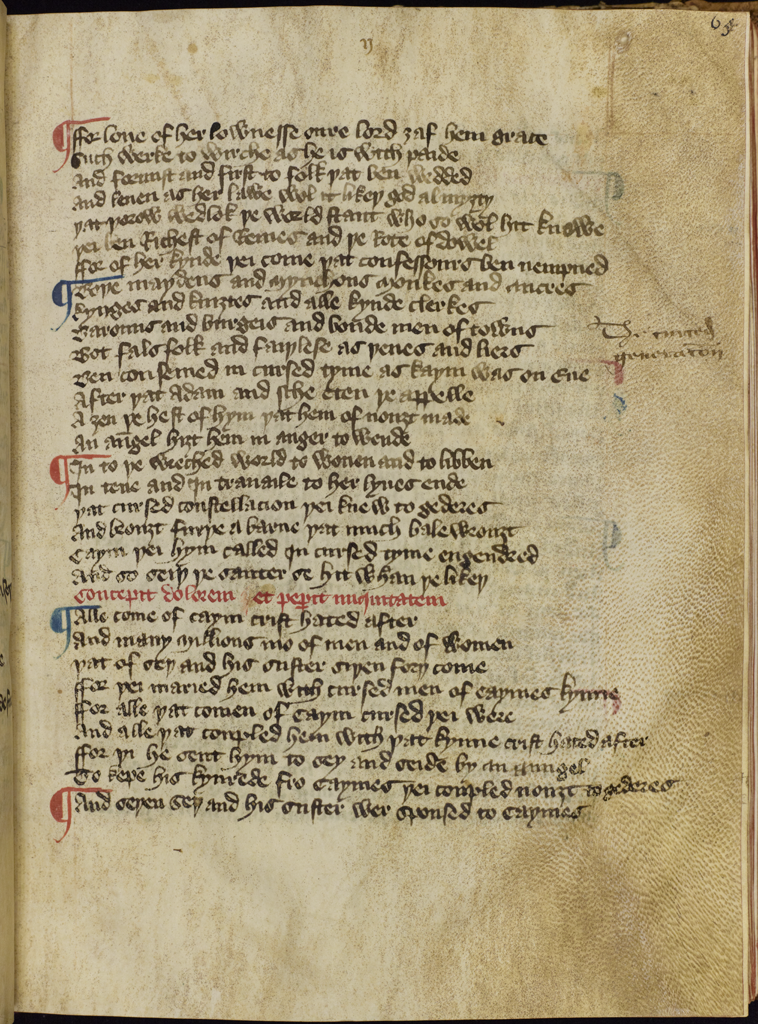 65
For loue of her lownesse oure lord ȝaf hem grace
Such werke to wirche as he is with paide
And formust and first to folk þat ben wedded
And lyuen as her lawe wol it likeþ god almyȝty
þat þorow wedlok þe world stant who so wol hit knowe
þei ben Richest of Remes and þe Rote of dowel
For of her kynde þei come þat confessours ben nempned
Boþe maydens and mynchons monkes and ancres
kynges and knyȝtes and alle kynde clerkes
Barouns and burgeis and bonde men of towns
Bot fals folk and faiþlese as þeues and liers
Ben conseiued in cursed tyme as kaym was on Eue
After þat Adam and sche eten þe appelle
A ȝen þe hest of hym þat hem of nouȝt made
An angel hiȝt hem in anger to wende
In to þe wreched world to wonen and to libben
In tene and in trauaile to her lyues ende
þat cursed constellacion þei knew to gederes
And brouȝt furþe a barne þat much bale wrouȝt
Caym þei hym called in cursed tyme engendred
And so seiþ þe sauter se hit whan þe likeþ
Concepit dolorem et peperit iniquitatem
Alle come of caym crist hated after
And many millions mo of men and of women
þat of seþ and his suster siþen forþ come
For þei maried hem with cursed men of caymes kynne
For alle þat comen of Caym cursed þei were
And alle þat coupled hem with þat kynne crist hated after
For þi he sent hym to sey and seide by an aungel
To kepe his kynrede fro Caymes þei coupled nouȝt to gederes
And seþen Seþ and his suster wer spoused to Caymes
The cursed
generacion